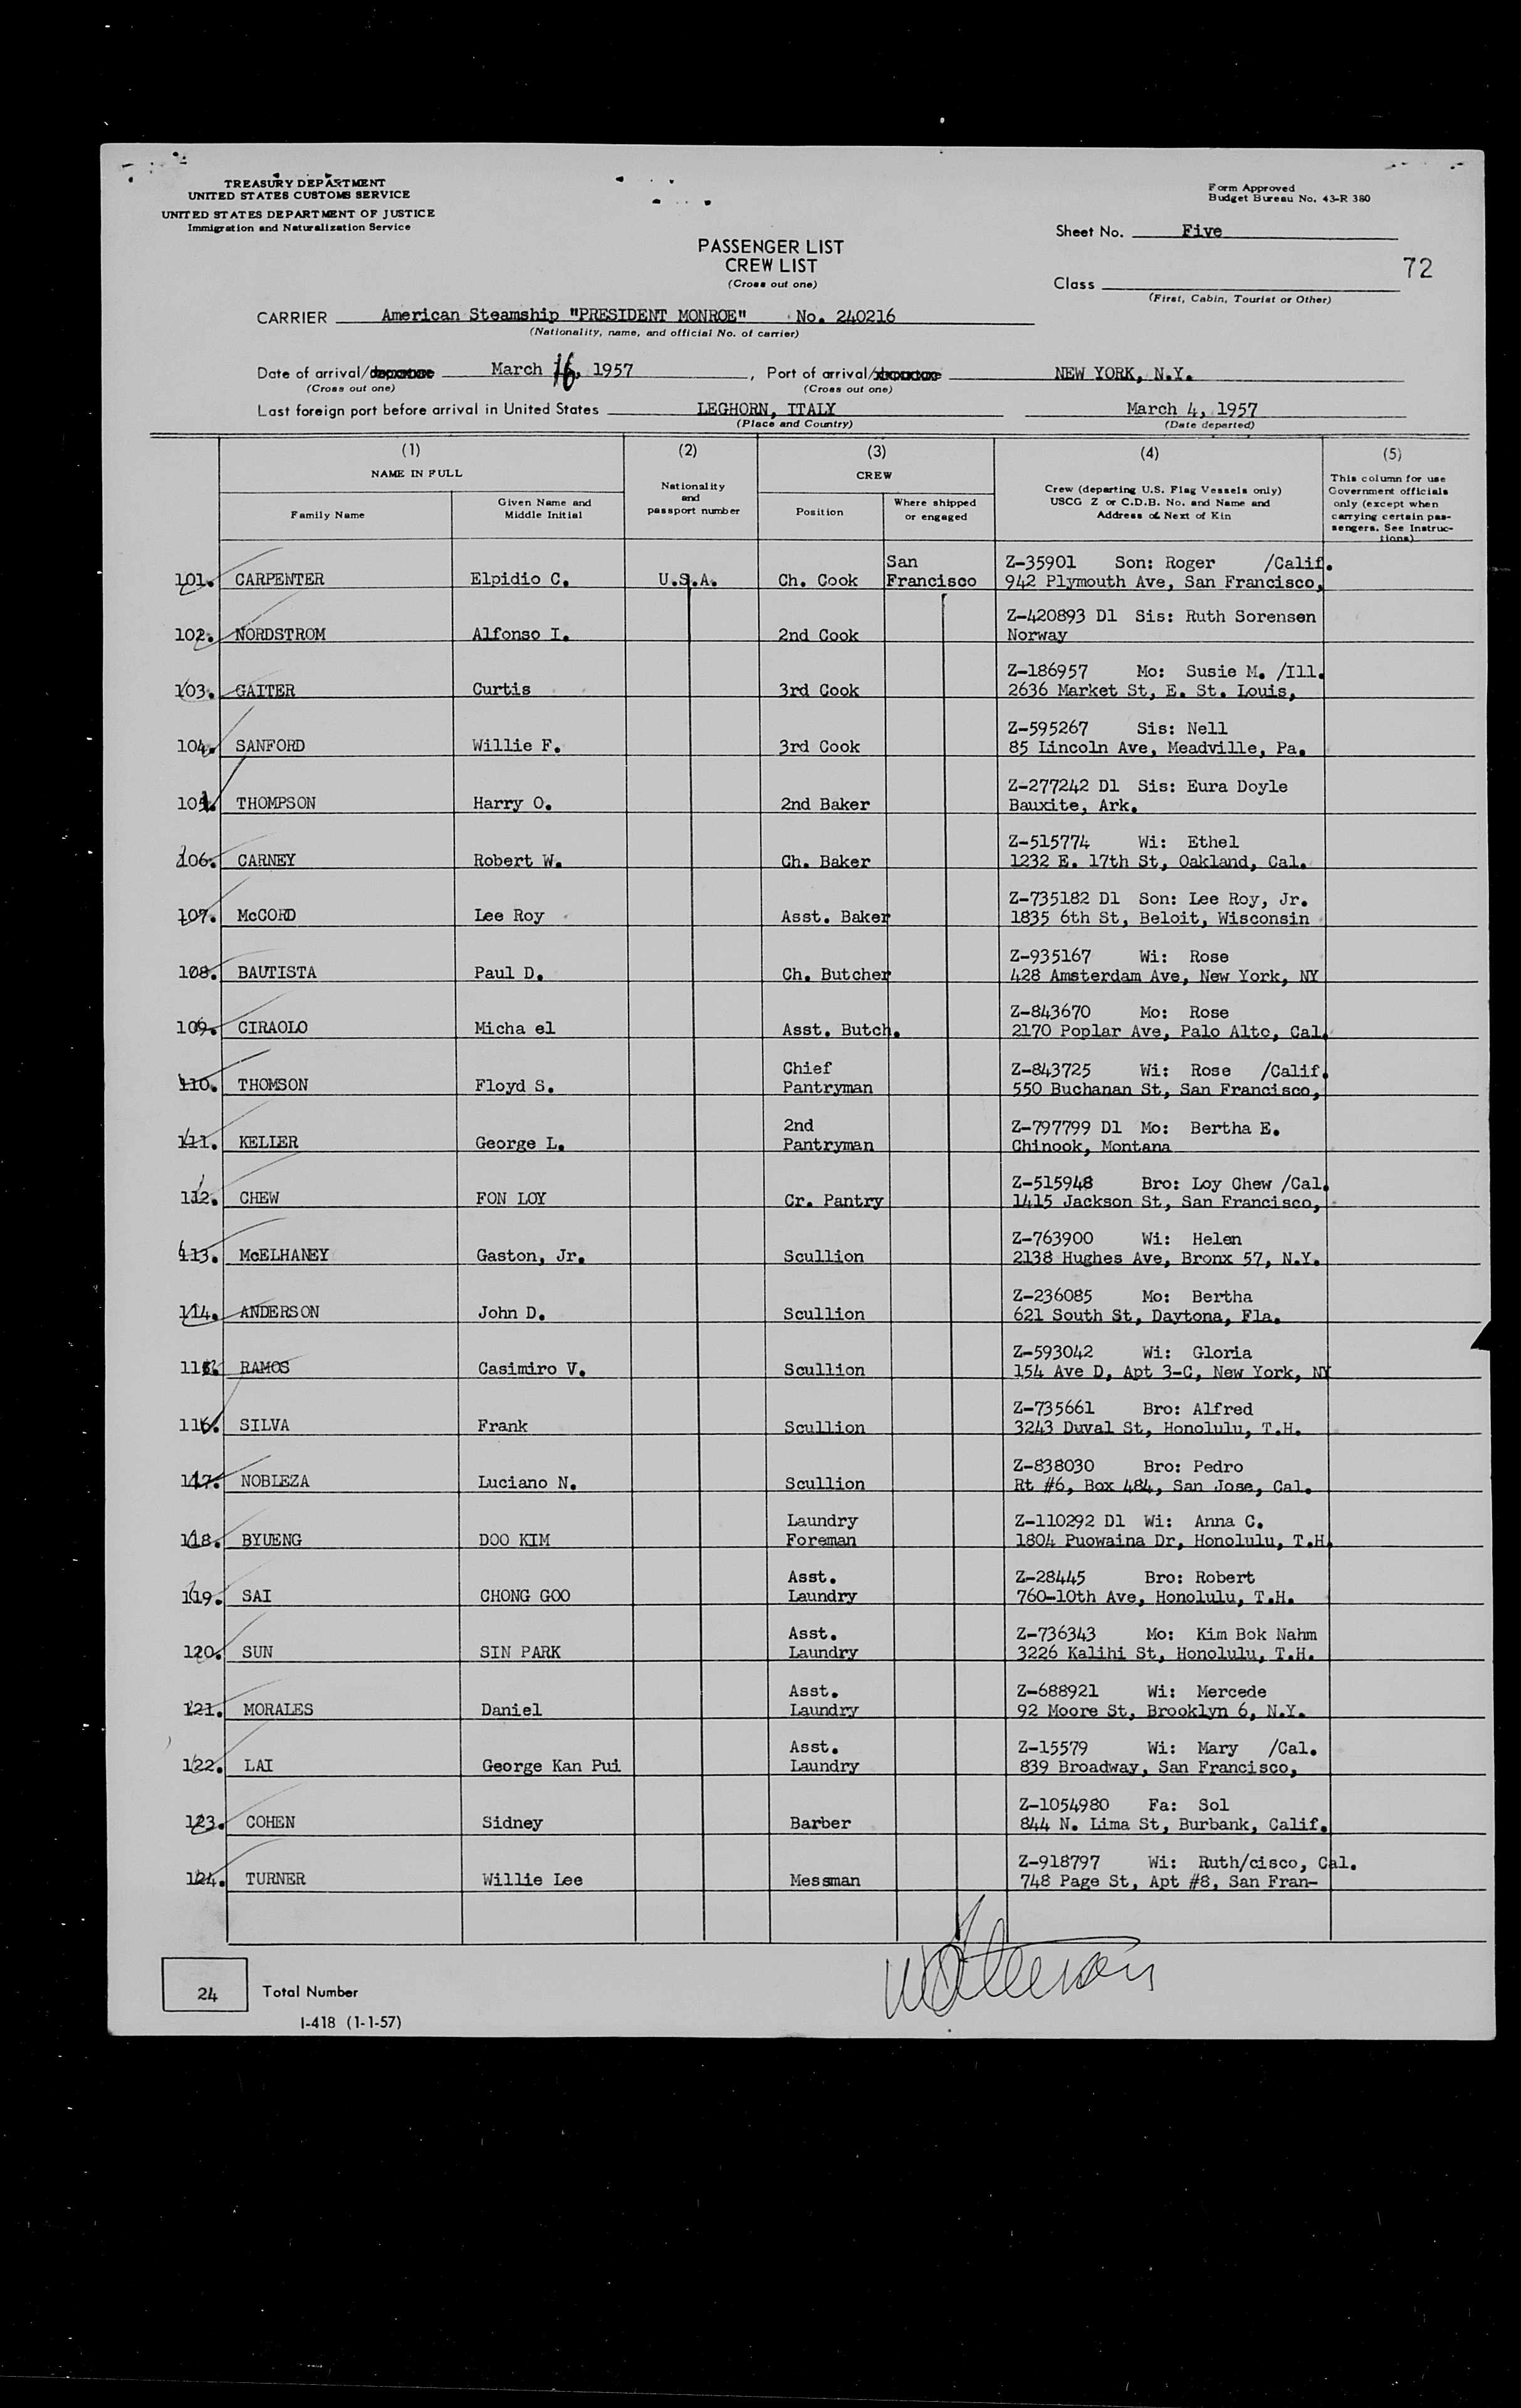 TREASURY DEPARTMENT
UNITED STATES CUSTOMS SERVICE
UNITED STATES DEPARTMENT OF JUSTICE
Immigration and Naturalization Service
Form Approved
Budget Bureau No. 43-R 380
Sheet No. Five
72
PASSENGER LIST
CREW LIST
(Cross out one)
Class
(First, Cabin, Tourist or Other)
CARRIER American Steamship "PRESIDENT MONROE" No. 240216
(Nationality, name, and official No. of carrier)
Date of arrival/departure March 16, 1957, Port of arrival/departure NEW YORK, N.Y.
(Cross out one) (Cross out one)
Last foreign port before arrival in United States LEGHORN, ITALY March 4, 1957
(Place and Country) (Date departed)
(1) (2) (3) (4) (5)
NAME IN FULL
Family Name
Given Name and
Middle Initial
Nationality
and
passport number
CREW
Position
Where shipped
or engaged
Crew (departing U.S. Flag Vessels only)
USCG Z or C.D.B. No. and Name and
Address of Next of Kin
This column for use
Government officials
only (except when
carrying certain pas-
sengers. See Instruc-
tions)
San Z-35901 Son: Roger /Calif.
101. CARPENTER Elpidio C. U.S.A. Ch. Cook Francisco 942 Plymouth Ave, San Francisco,
Z-420893 D1 Sis: Ruth Sorensen
102. NORDSTROM Alfonso I. 2nd Cook Norway
Z-186957 Mo: Susie M. /Ill.
103. GAITER Curtis 3rd Cook 2636 Market St, E. St. Louis,
Z-595267 Sis: Nell
104. SANFORD Willie F. 3rd Cook 85 Lincoln Ave, Meadville, Pa.
Z-277242 D1 Sis: Eura Doyle
105. THOMPSON Harry O. 2nd Baker Bauxite, Ark.
Z-515774 Wi: Ethel
106. CARNEY Robert W. Ch. Baker 1232 E. 17th St, Oakland, Cal.
Z-735182 D1 Son: Lee Roy, Jr.
107. McCORD Lee Roy Asst. Baker 1835 6th St, Beloit, Wisconsin
Z-935167 Wi: Rose
108. BAUTISTA Paul D. Ch. Butcher 428 Amsterdam Ave, New York, NY
Z-843670 Mo: Rose
109. CIRAOLO Micha el Asst. Butch. 2170 Poplar Ave, Palo Alto, Cal.
Chief Z-843725 Wi: Rose /Calif.
110. THOMSON Floyd S. Pantryman 550 Buchanan St, San Francisco,
2nd Z-797799 D1 Mo: Bertha E.
111. KELLER George L. Pantryman Chinook, Montana
Z-515948 Bro: Loy Chew /Cal.
112. CHEW FON LOY Cr. Pantry 1415 Jackson St, San Francisco,
Z-763900 Wi: Helen
113. McELHANEY Gaston, Jr. Scullion 2138 Hughes Ave, Bronx 57, N.Y.
Z-236085 Mo: Bertha
114. ANDERSON John D. Scullion 621 South St, Daytona, Fla.
Z-593042 Wi: Gloria
115. RAMOS Casimiro V. Scullion 154 Ave D, Apt 3-C, New York, NY
Z-735661 Bro: Alfred
116. SILVA Frank Scullion 3243 Duval St, Honolulu, T.H.
Z-838030 Bro: Pedro
117. NOBLEZA Luciano N. Scullion Rt #6, Box 484, San Jose, Cal.
Laundry Z-110292 D1 Wi: Anna C.
118. BYUENG DOO KIM Foreman 1804 Puowaina Dr, Honolulu, T.H.
Asst. Z-28445 Bro: Robert
119. SAI CHONG GOO Laundry 760-10th Ave, Honolulu, T.H.
Asst. Z-736343 Mo: Kim Bok Nahm
120. SUN SIN PARK Laundry 3226 Kalihi St, Honolulu, T.H.
Asst. Z-688921 Wi: Mercede
121. MORALES Daniel Laundry 92 Moore St, Brooklyn 6, N.Y.
Asst. Z-15579 Wi: Mary /Cal.
122. LAI George Kan Pui Laundry 839 Broadway, San Francisco,
Z-1054980 Fa: Sol
123. COHEN Sidney Barber 844 N. Lima St, Burbank, Calif.
Z-918797 Wi: Ruth/cisco, Cal.
124. TURNER Willie Lee Messman 748 Page St, Apt #8, San Fran-
24 Total Number
I-418 (1-1-57)